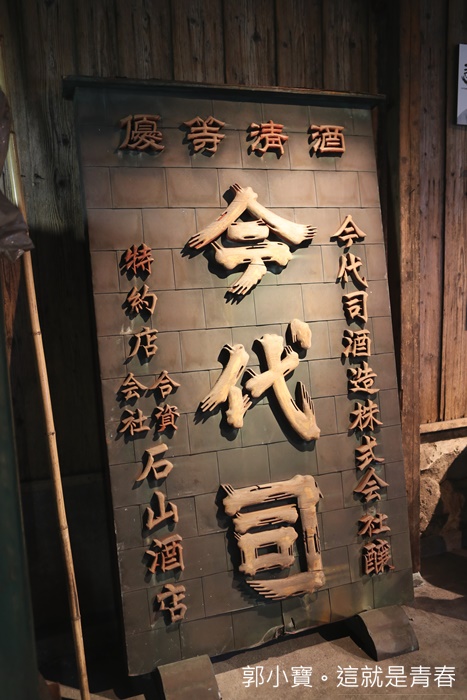 優等清酒
今代司酒造株式会社醸
今代司
特約店
合資会社
石山酒店
郭小寶。這就是青春